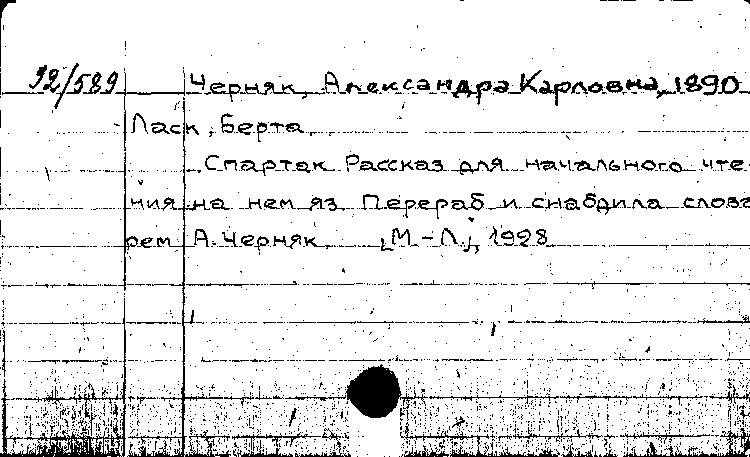 32/589 Черняк, Александра Карловна, 1890
Ласк, Берта.
Спартак. Рассказ для начального чте-
ния на нем. яз. Перераб. и снабдила слова-
рем А. Черняк. [М.-Л.], 1928